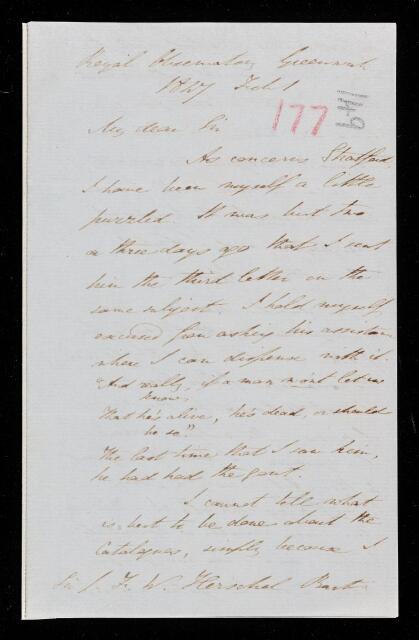 Royal Observatory Greenwich
1847 Feb 1
177
149
My dear Sir
As concerns Stratford,
I have been myself a little
puzzled. It was but two
or three days ago that I sent
him the third letter on the
same subject. I hold myself
excused from asking his assistance
where I can dispense with it.
"And really, if a man won't let us
know,
That he's alive, he's dead, or should
be so."
The last time that I saw him,
he had had the gout.
I cannot tell what
is best to be done about the
Catalogues, simply because I
Sir J. F. W. Herschel Bart